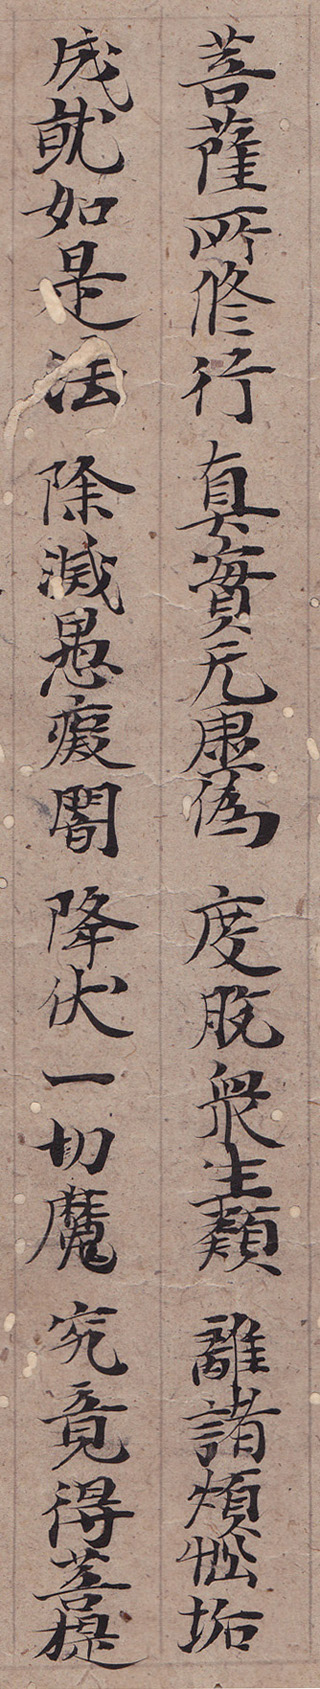 菩薩所修行 真實无虛偽 度脫衆生類 離諸煩惱垢
成就如是法 除滅愚癡闇 降伏一切魔 究竟得菩提